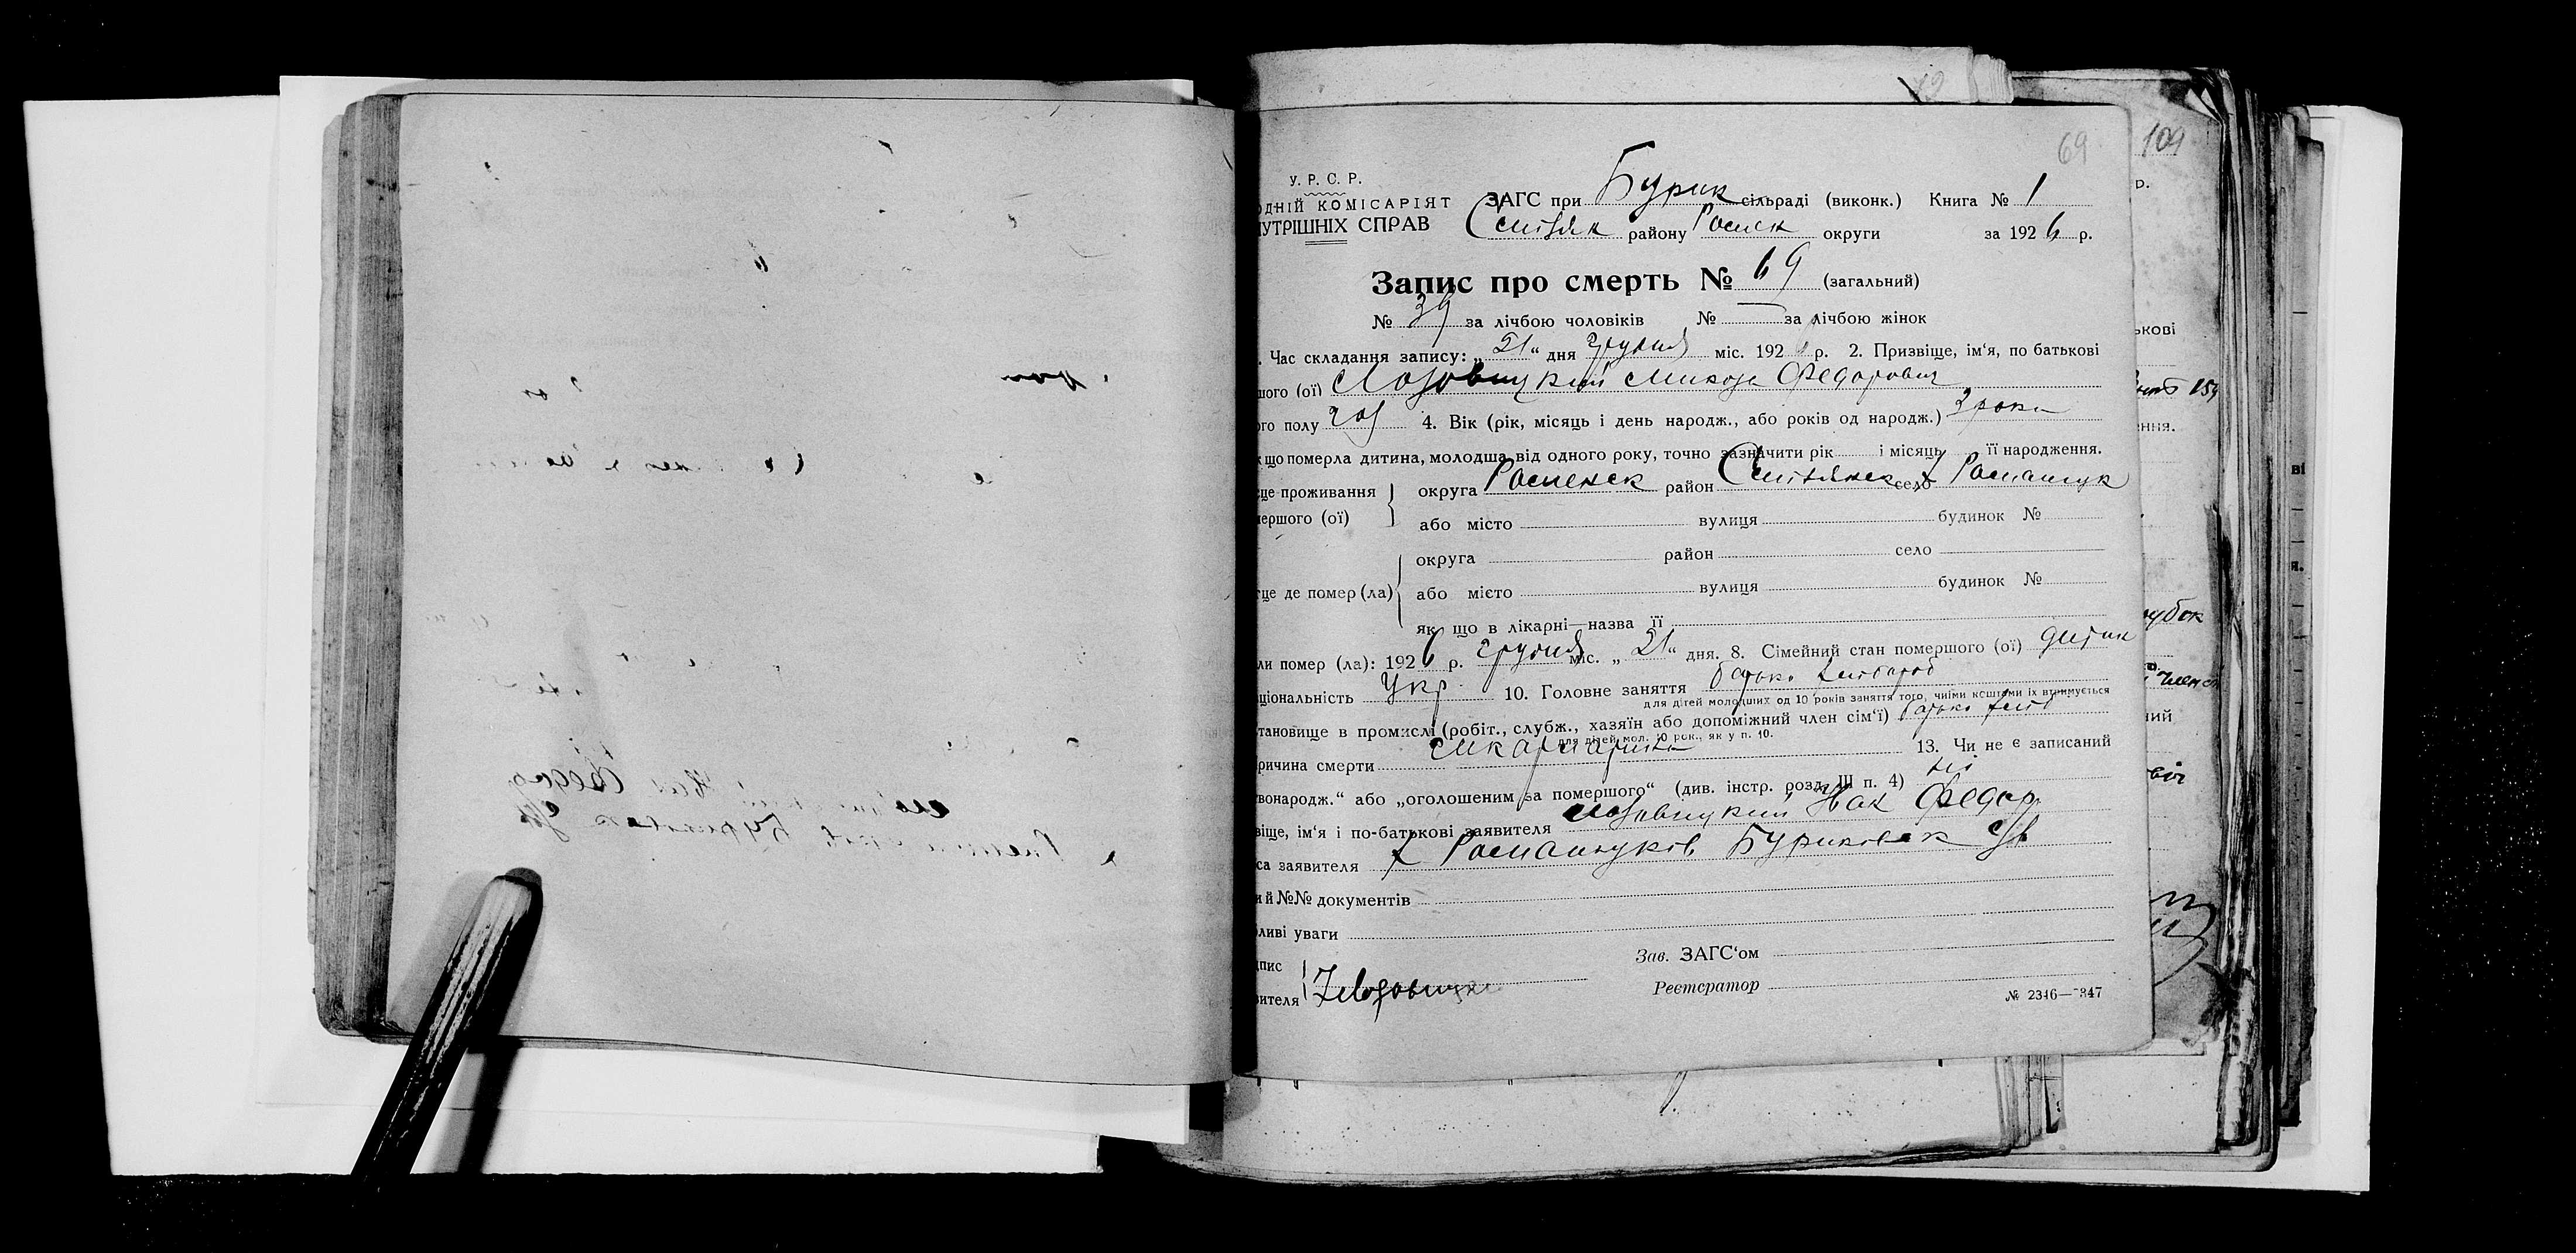 69
109
У. Р. С. Р.
ОДНІЙ КОМІСАРІЯТ ЗАГС при Бурик сільраді (виконк.) Книга № 1
УТРІШНІХ СПРАВ Смілян району Роменск округи за 1926 р.
Запис про смерть № 69 (загальний)
№ 39 за лічбою чоловіків № — за лічбою жінок
Час складання запису: „21“ дня грудня міс. 1926 р. 2. Призвіще, ім‘я, по батькові
шого (ої) Лозовицкий Микола Федорович
ого полу чол 4. Вік (рік, місяць і день народж., або років од народж.) 3 роки
що померла дитина, молодша від одного року, точно зазначити рік і місяць її народження.
це проживання округа Роменск район село х Ромащук
ершого (ої) або місто вулиця будинок №
округа район село
це де помер (ла) або місто вулиця будинок №
як що в лікарні—назва її
ли помер (ла): 1926 р. грудня міс. „21“ дня. 8. Сімейний стан помершого (ої)
ціональність Укр. 10. Головне заняття батько хлібороб
для дітей молодших од 10 років заняття того, чиїми коштами їх втримується
тановище в промислі (робіт., служб., хазяїн або допоміжний член сім‘ї) батько
для дітей мол. 10 рок., як у п. 10.
ричина смерти скарлатина 13. Чи не є записаний
вонародж.“ або „оголошеним за помершого“ (див. інстр. розд. III п. 4) ні
віще, ім‘я і по-батькові заявителя Лозовицкий Федор
са заявителя х Ромащуков Буриковск с/р
ий №№ документів
ливі уваги
пис Зав. ЗАГС‘ом
вителя Лозовицкий Реєстратор
№ 2346—347